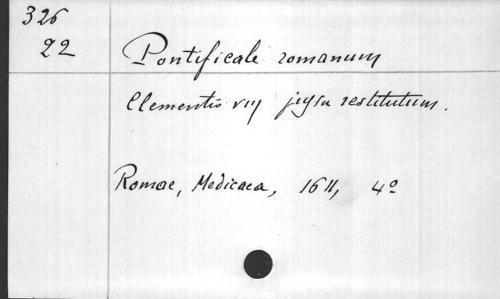 326
22
Pontificale romanum
Clementis viij jussu restitutum.
Romae, Medicaea, 1611, 4º